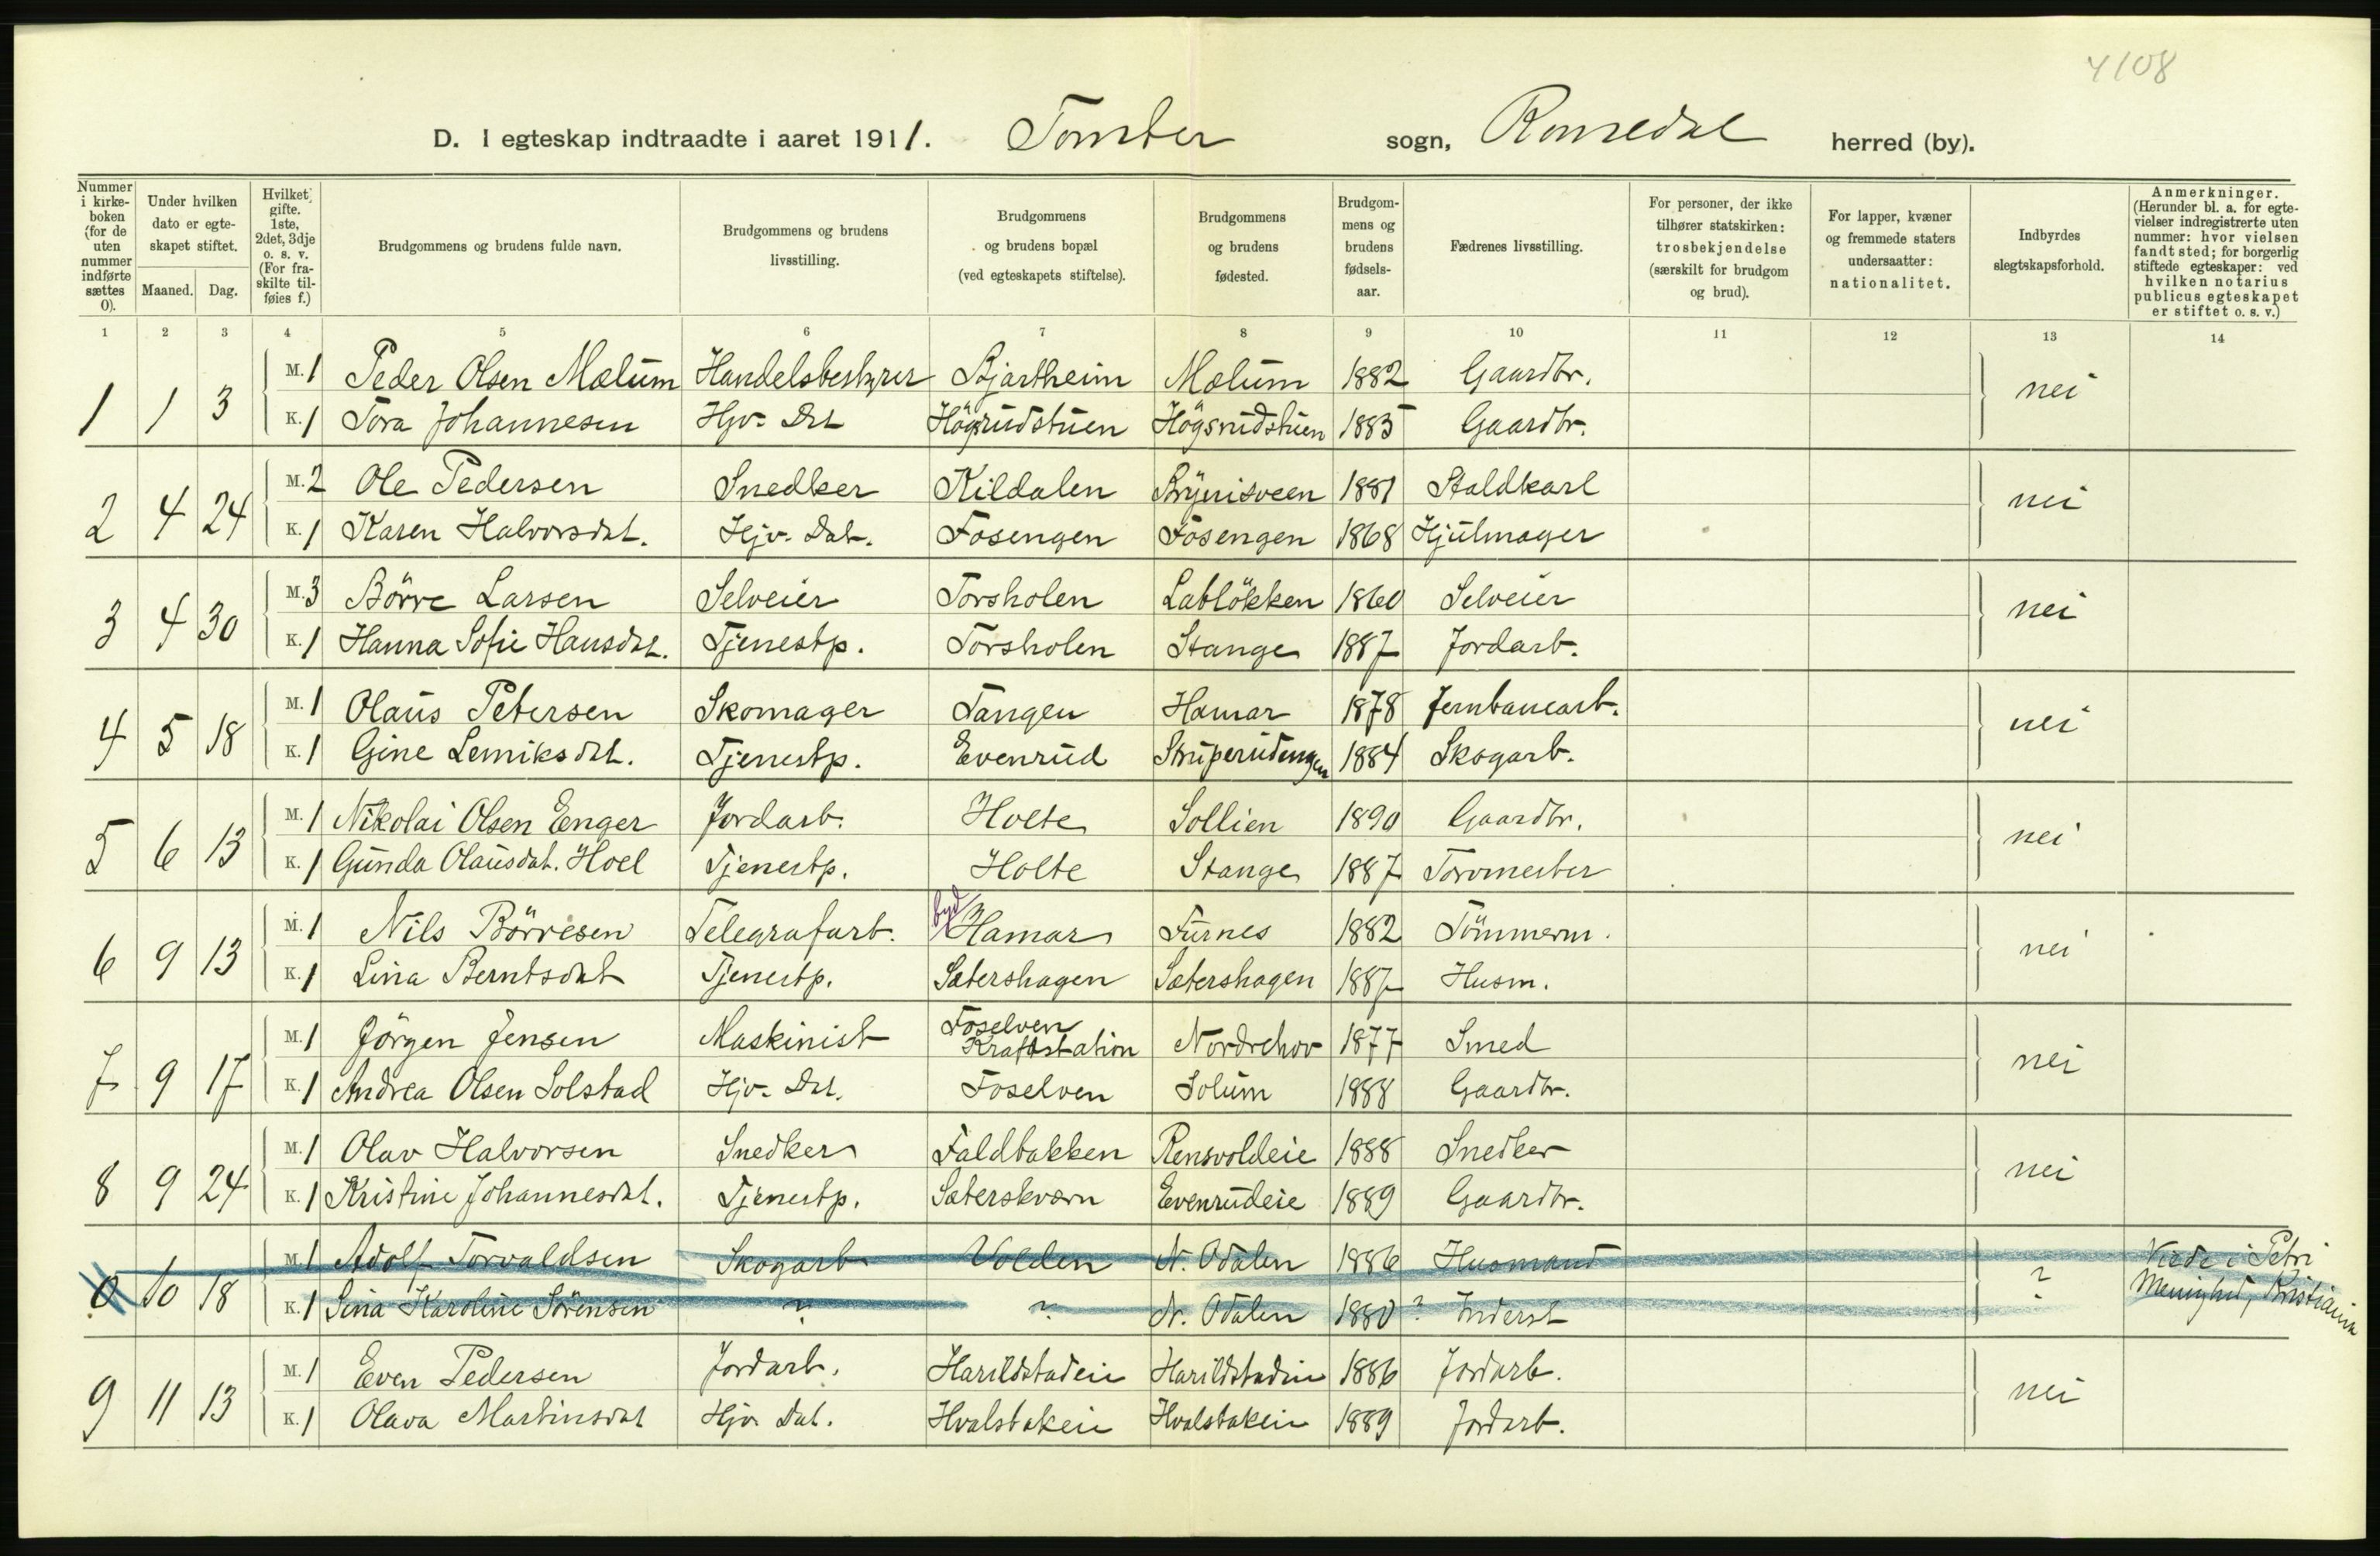 4108
D. I egteskap indtraadte i aaret 1911. Tomter sogn, Romedal herred (by).
Nummer i kirkeboken (for de uten nummer indførte sættes 0).
Under hvilken dato er egteskapet stiftet.
Maaned. Dag.
Hvilket gifte. 1ste, 2det, 3dje o. s. v. (For fraskilte tilføies f.)
Brudgommens og brudens fulde navn.
Brudgommens og brudens livsstilling.
Brudgommens og brudens bopæl (ved egteskapets stiftelse).
Brudgommens og brudens fødested.
Brudgommens og brudens fødselsaar.
Fædrenes livsstilling.
For personer, der ikke tilhører statskirken: trosbekjendelse (særskilt for brudgom og brud).
For lapper, kvæner og fremmede staters undersaatter: nationalitet.
Indbyrdes slegtskapsforhold.
Anmerkninger. (Herunder bl. a. for egtevielser indregistrerte uten nummer: hvor vielsen fandt sted; for borgerlig stiftede egteskaper: ved hvilken notarius publicus egteskapet er stiftet o. s. v.)
1 2 3 4 5 6 7 8 9 10 11 12 13 14
1 1 3 M. 1 Peder Olsen Mælum Handelsbestyrer Bjartheim Mælum 1882 Gaardbr. nei
K. 1 Tora Johannesen Hjv. Dat Högsrudstuen Högsrudstuen 1885 Gaardbr.
2 4 24 M. 2 Ole Pedersen Snedker Kildalen 1881 Staldkarl nei
K. 1 Karen Halvorsdat. Hjv. Dat. Fosengen Fosengen 1868 Hjulmager
3 4 30 M. 3 Börre Larsen Selveier Torsholen Labløkken 1860 Selveier nei
K. 1 Hanna Sofie Hansdat. Tjenestp. Torsholen Stange 1887 Jordarb.
4 5 18 M. 1 Olaus Petersen Skomager Tangen Hamar 1878 Jernbanearb. nei
K. 1 Gine Lemiksdat. Tjenestp. Evenrud Struperudengen 1884 Skogarb.
5 6 13 M. 1 Nikolai Olsen Enger Jordarb. Holte Sollien 1890 Gaardbr. nei
K. 1 Gunda Olausdat. Hoel Tjenestp. Holte Stange 1887 Torvmester
6 9 13 M. 1 Nils Börresen Telegrafarb. byd Hamar Furnes 1882 Tömmerm. nei
K. 1 Lina Berntsdat Tjenestp. Sætershagen Sætershagen 1887 Husm.
7 9 17 M. 1 Jörgen Jensen Maskinist Foselven Kraftstation Nordrehov 1877 Smed nei
K. 1 Andrea Olsen Solstad Hjv. Dat. Foselven Solum 1888 Gaardbr.
8 9 24 M. 1 Olav Halvorsen Snedker Faldbakken Rensvoldeie 1888 Snedker nei
K. 1 Kristine Johannesdat. Tjenestp. Sæterskværn Evenrudeie 1889 Gaardbr.
0 10 18 M. 1 Adolf Torvaldsen Skogarb Volden N. Odalen 1886 Husmand ? Viede i Petri
K. 1 Lina Karoline Sörensen ? ? N. Odalen 1880 ? Inderst Menighed, Kristiania
9 11 13 M. 1 Even Pedersen Jordarb. Harildstadeie Harildstadeie 1886 Jordarb. nei
K. 1 Olava Martinsdat Hjv. Dat. Hvalstakeie Hvalstakeie 1889 Jordarb.